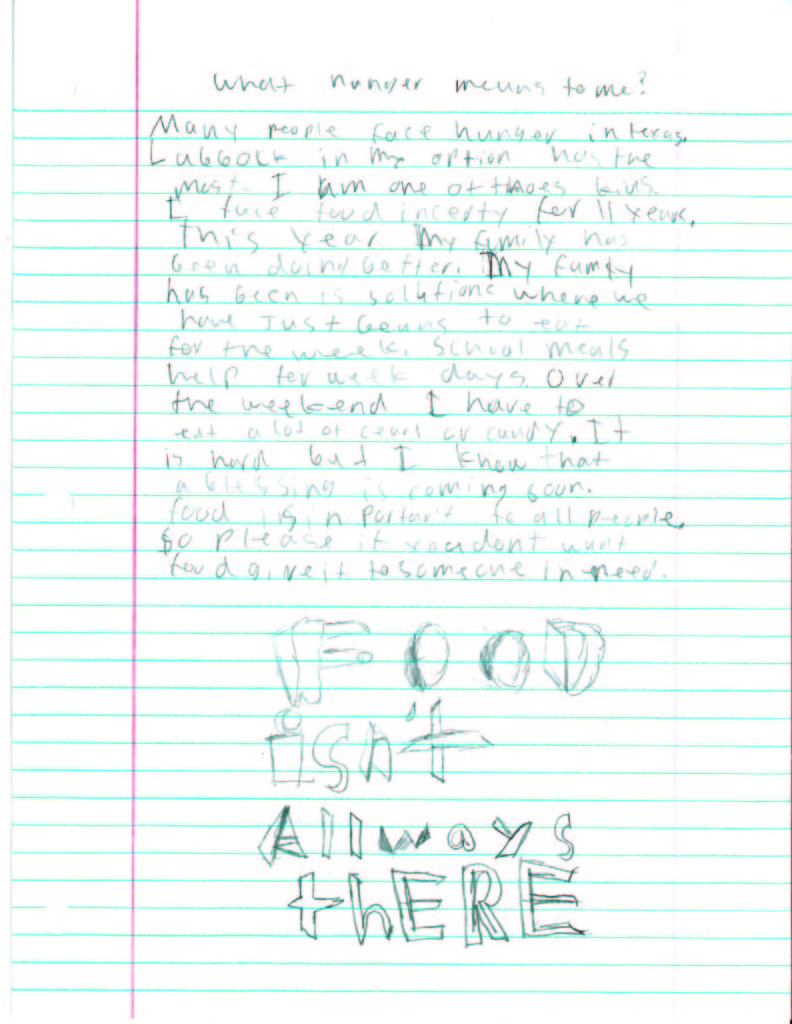 what hunger means to me?
Many people face hunger in texas.
Lubbock in my option has the
most. I am one of thoes kids.
I face food incerty for 11 years.
This year My family has
been doing better. My family
has been is solutions where we
have Just beans to eat
for the week. School meals
help for week days. Over
the weekend I have to
eat a lot of cearl or candy. It
is hard but I know that
a blessing is coming soon.
food is in portant to all people.
So please if you dont want
food give it to someone in need.
FOOD
isn't
Allways
thERE